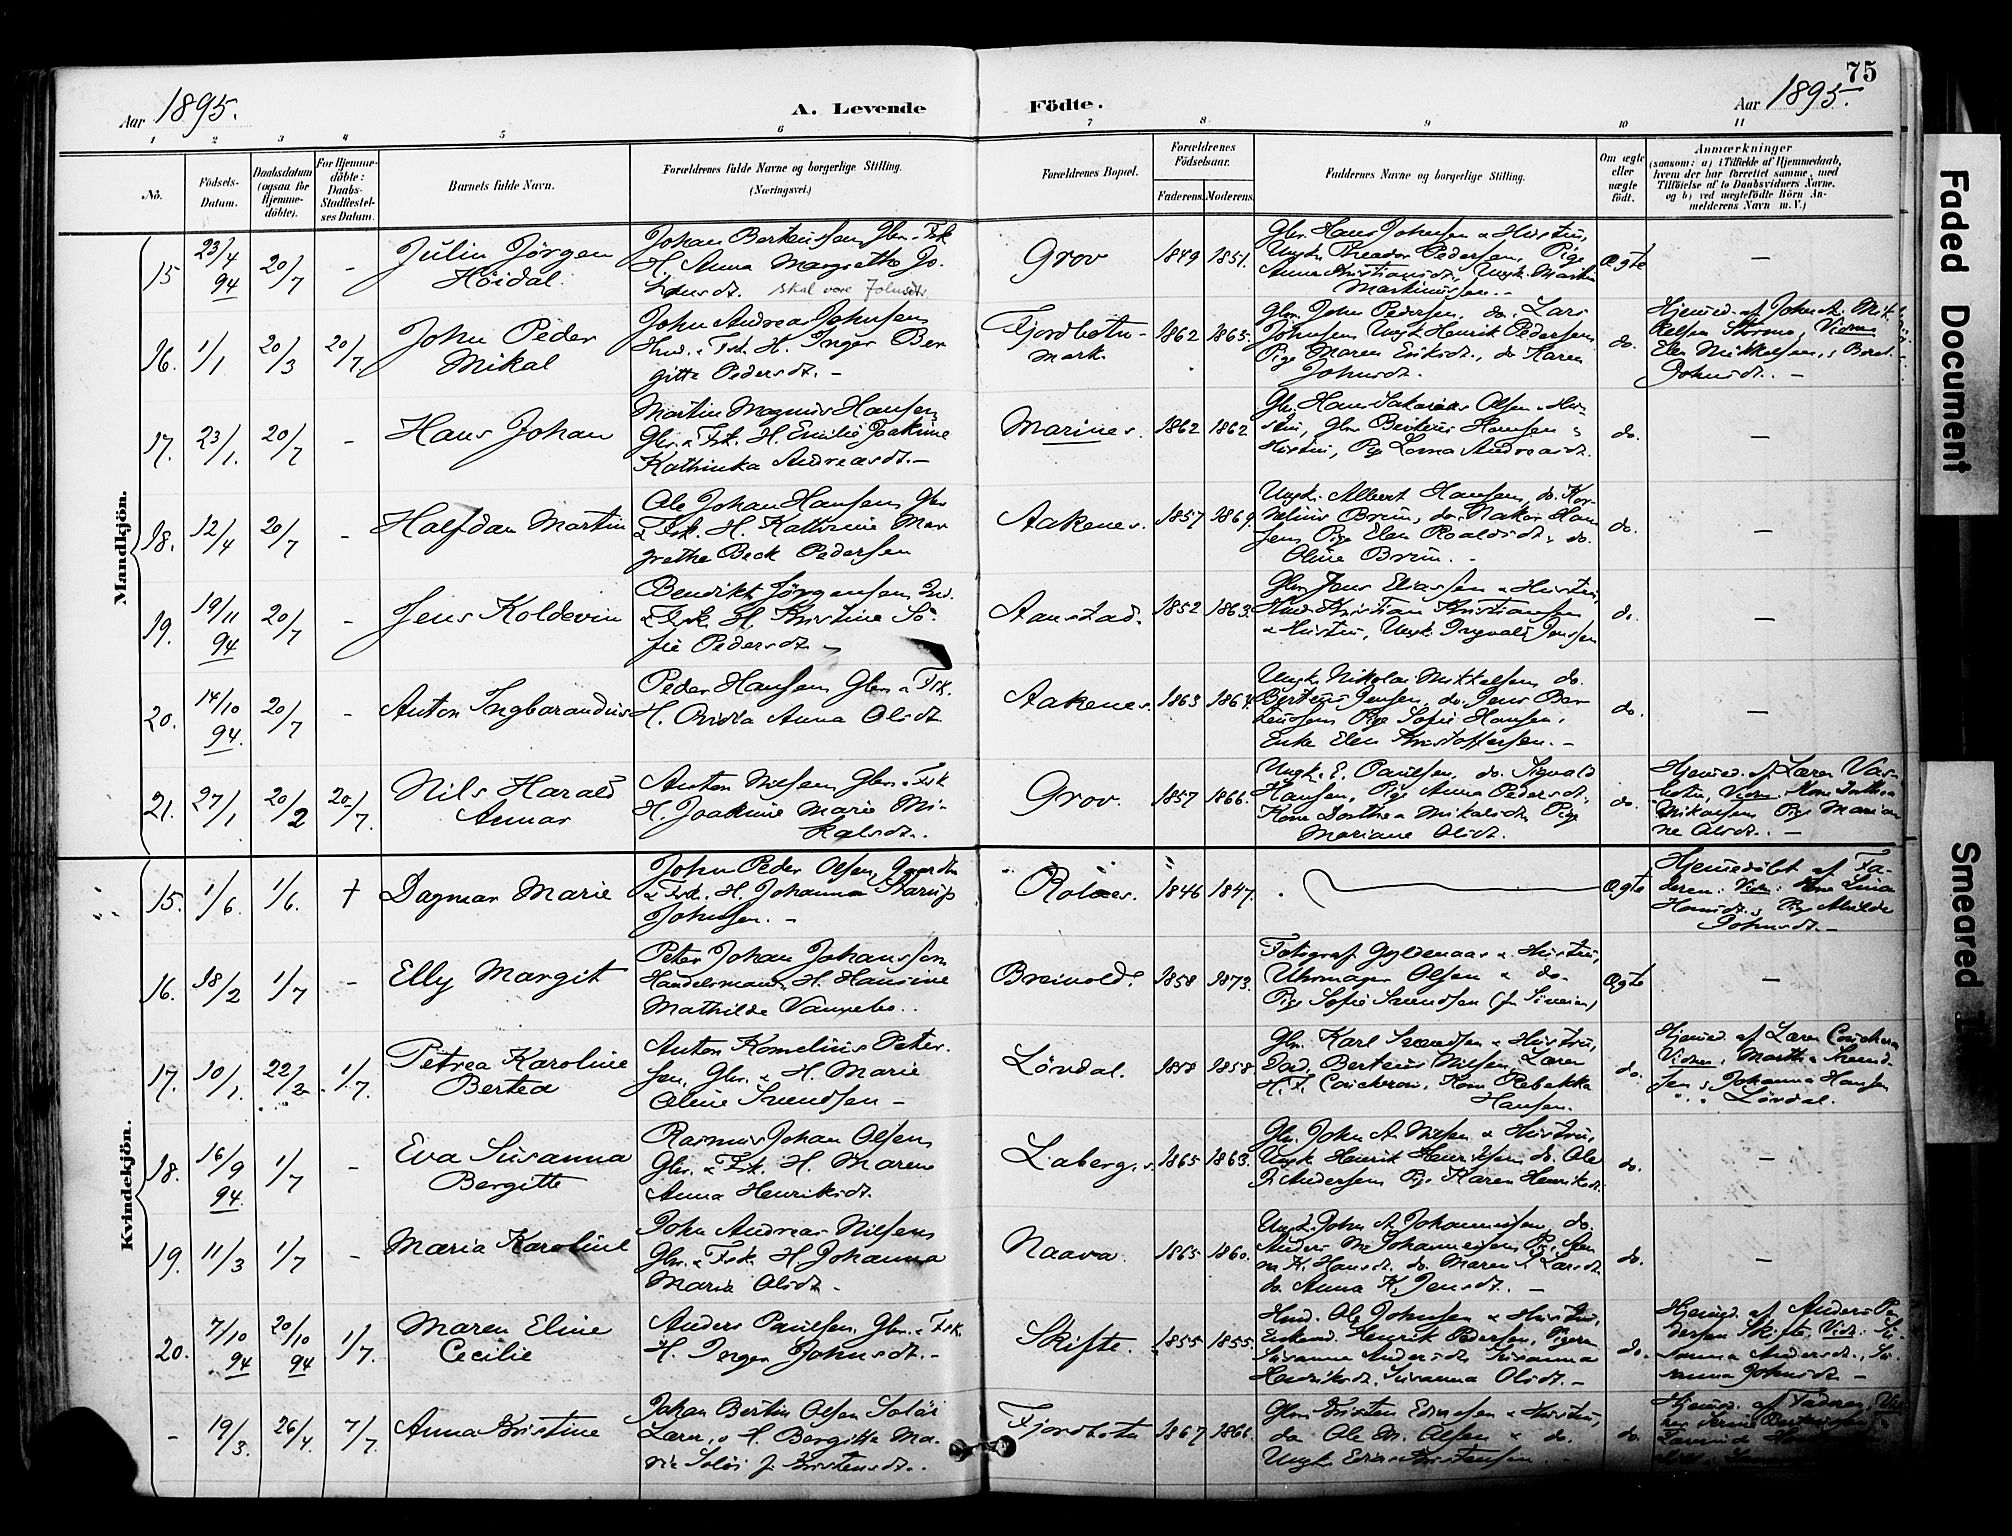 75
Aar 1895.
A. Levende Födte.
Aar 1895.
1 2 3 4 5 6 7 8 9 10 11
No.
Födsels-Datum.
Daabsdatum (ogsaa for Hjemme-döbte).
For Hjemme-döbte: Daabs-Stadfæstel-ses Datum.
Barnets fulde Navn.
Forældrenes fulde Navne og borgerlige Stilling. (Næringsvei.)
Forældrenes Bopæl.
Forældrenes Födselsaar.
Faderens. Moderens.
Faddernes Navne og borgerlige Stilling.
Om ægte eller uægte födt.
Anmærkninger
(saasom: a) i Tilfælde af Hjemmedaab,
hvem der har forrettet samme, med
Tilföielse af to Daabsvidners Navne,
og b) ved uægtefödte Börn An-
melderens Navn m. V.)
Mandkjön.
15 23/4 94 20/7 -
Julin Jörgen
Höidal.
Johan Berteussen, Gbr. Fsk
H. Anna Margrethe Jo-
hansdt. skal være Johnsdtr.
Grov 1849 1851.
Gbr. Hans Johnsen & Hustru,
Ungk. Theador Pedersen, Pige
Anna Kristiansdt., Ungk. Martin
Martinussen.-
Ægte -
16. 1/1 20/3 20/7.
John Peder
Mikal
John Andreas Johnsen
Hmd. & Fsk. H. Inger Ber
gitte Pedersdt. -
Fjordbotn-
mark. 1862 1865.
Gbr. John Pedersen, do. Lars
Johnsen Ungk. Henrik Pedersen
Pige Maren Eriksdt., do Karen
Johnsdt.
do.
Hjemmed. af John A. Mik
kelsen Stormo, Vidne
Elen Mikkelsen, & Beret
Johnsdt. -
17. 23/1. 20/7 -
Hans Johan
Martin Magnus Hansen
Gbr. & Fsk. H. Emilie Joakime
Kathinka Andreasdt.-
Marines. 1862 1862
Gbr. Hans Sakarias Olsen & Hu-
stru, Gbr. Berteus Hansen &
Hustru, Pige Lorna Andreasdt.
do. -
18. 12/4 20/7 -
Halfdan Martin
Ole Johan Hansen, Gbr
& Fsk. H. Kathrine Mar
grethe Beck Pedersen
Aakenes. 1857 1869.
Ungk. Albert Hansen, do. Kor-
nelius Bruun, do. Hakon Han
sen, Pige Elen Roaldsdt. do.
Oline Bruun.-
do. -
19. 19/11 94 20/7 -
Jens Koldevin
Benedikt Jörgensen, Ind.
& Fsk. H. Kristine So-
fie Pedersdt. -
Aanstad. 1852 1863.
Gbr. Jens Eliassen & Hustru,
Hmd. Kristian Kristiansen
& Hustru, Ungk. Ingvald Jenssen
do. -
20. 14/10 94. 20/7 -
Anton Ingbarandius
Peder Hansen Gbr. & Fsk.
H. Ovidia Anna Olsdt
Aakenes. 1863 1867.
Ungk. Nikolai Mikkelsen, do.
Berteus Jensen, do. Jens Ber
teussen Pige Sofie Hansen,
Enke Elen Kristoffersen.-
do. -
21. 27/1 20/2 20/7.
Nils Harald
Annar
Anton Nilsen, Gbr. & Fsk
H. Joakime Marie Mi-
kalsdt.
Grov. 1857 1866.
Ungk. E. Paulsen, do. Sigvald
Hansen, Pige Anna Pedersdt.
Kone Dorthea Mikalsdt, Pige
Mariane Olsdt.
do.
Hjemmed. af Lærer Vas-
botn, Vidn. Kone Dorthea
Mikalsen Pige Maria
ne Olsdt. -
Kvindekjön.
15. 1/6. 1/6. †
Dagmar Marie
John Peder Olsen, Gaardbr
& Fsk. H. Johanna Starup
Johnsen. -
Rolnes. 1846 1847.
Ægte
Hjemmedöbt af Fa-
deren. Vidn: Kone Lina
Hansdt. & Pige Milda
Johnsdt. -
16. 18/2 1/7 -
Elly Margit
Peter Johan Johansson
Handelsmand, H. Hansine
Mathilde Vangebo.
Breivold. 1858 1873.
Fotograf Gyldenaas & Hustru,
Uhrmager Olsen & do.
Pige Sofie Svendsen
Ægte -
17. 10/1 22/2 1/7.
Petrea Karoline
Bertea
Anton Kornelius Peter-
sen, Gbr. & H. Marie
Oline Svendsen -
Lövdal. 1858 1858.
Gbr. Karl Svendsen & Hustru,
Dav. Berteus Nilsen, Lærer
Kone Rebekka
Hansen.
do.
Hjemmed. af Lærer
Vidner, Marthe Svend
sen & Johanna Hansen
Lövdal.
18. 16/9 94. 1/7 -
Eva Susanna
Bergitte
Rasmus Johan Olsen
Gbr. & Fsk. H. Maren
Anna Henriksdt.
Laberg. 1865 1863.
Gbr. John A. Nilsen & Hustru,
Ungk Henrik Henriksen do. Ole
P. Andersen Pige Karen Henriksdt.
do. -
19. 11/3 1/7 -
Maria Karoline
John Andreas Nilsen
Gbr. & Fsk. H Johanna
Marie Olsdt. -
Naava. 1865 1860.
Ungk. John A. Johannessen, do.
Anders M. Johannessen Pige
K. Hansdt. do. Maren S. Larsdt.
do Anna K. Jensdt. -
do. -
20. 7/10 94 20/10 94 1/7.
Maren Eline
Cecilie
Anders Paulsen, Gbr. & Fsk.
H. Inger Johnsdt.-
Skifte. 1855 1855.
Hmd. Ole Johnsen & Hustru,
Enkemd. Henrik Pedersen, Pigern
Susanna Andersdt. Susanna
Henriksdt, Susanna Olsdt. -
do.
Hjemmed. af Anders Pe
dersen Skifte, Vidn. Su-
sanna Andersdt., Su-
sanna Johnsdt -
- 19/3. 26/4. 7/7.
Anna Kristine
Johan Bertin Olsen Solöi
Lærer, & H. Bergitte Ma-
rie Solöi f. Kristensdt..
Fjordbotn 1867 1866.
Gbr. Kristen Edissen & Hustru,
do Ole M. Olsen & do.
Ungk. Kristensen -
do.
Hjemmed. af Faderen,